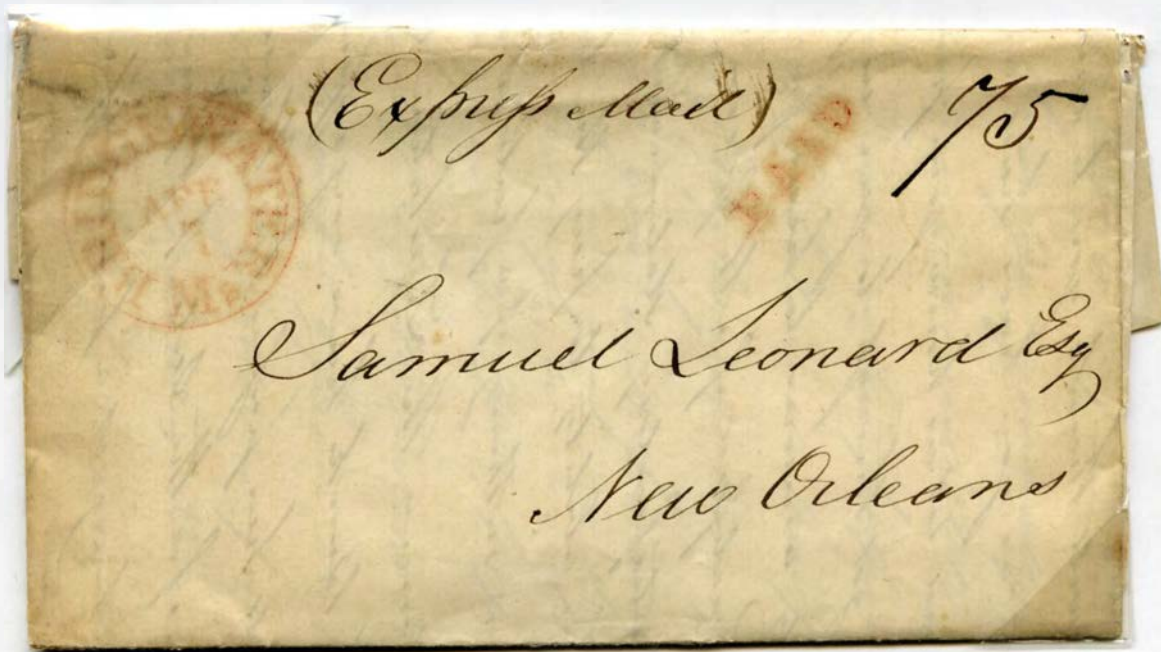 (Express Mail)
75
PAID
APR
7
Samuel Leonard Esq
New Orleans